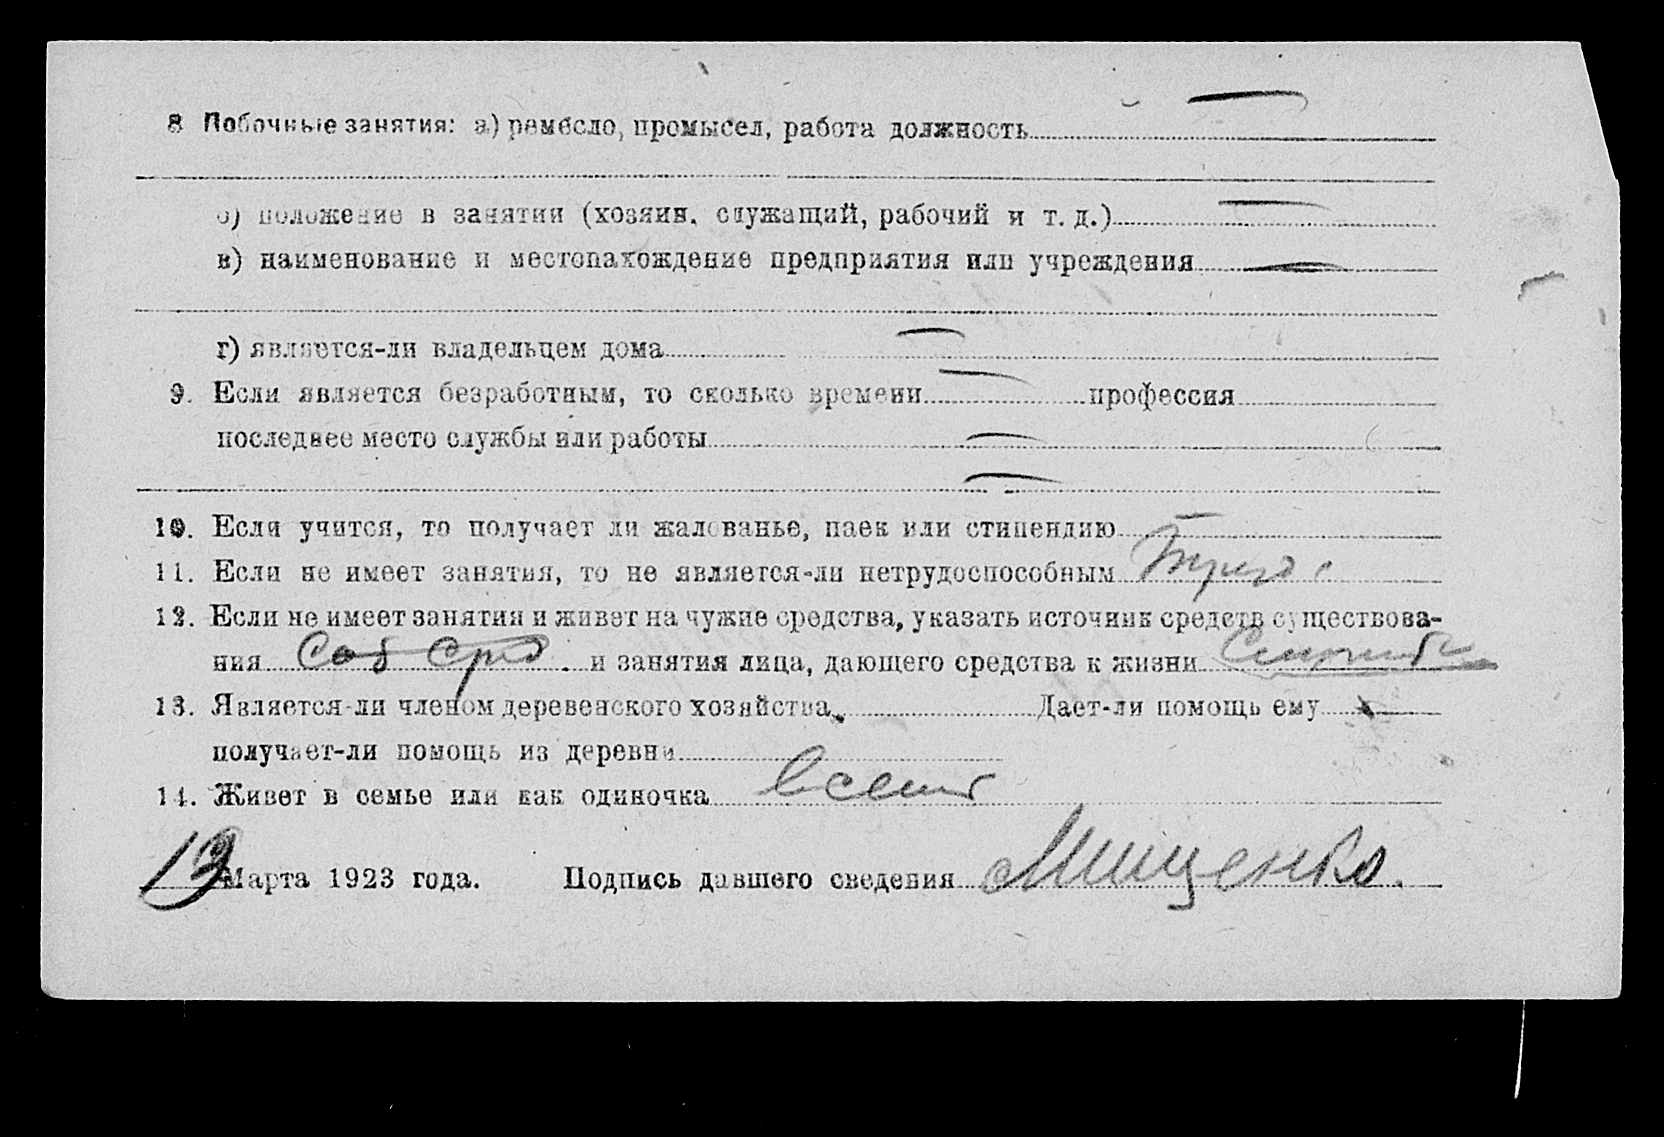 8 Побочные занятия: а) ремесло, промысел, работа должность —
б) положение в занятии (хозяин, служащий, рабочий и т. д.) —
в) наименование и местонахождение предприятия или учреждения —
г) является-ли владельцем дома —
9. Если является безработным, то сколько времени — профессия
последнее место службы или работы —
—
10. Если учится, то получает ли жалованье, паек или стипендию —
11. Если не имеет занятия, то не является-ли нетрудоспособным
12. Если не имеет занятия и живет на чужие средства, указать источник средств существова-
ния Соб сред. и занятия лица, дающего средства к жизни
13. Является-ли членом деревенского хозяйства Дает-ли помощь ему
получает-ли помощь из деревни
14. Живет в семье или как одиночка в семье
13 Марта 1923 года. Подпись давшего сведения Мищенко.